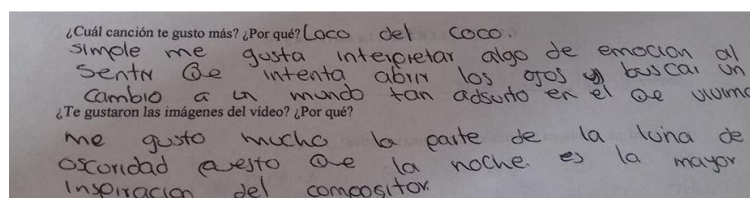 ¿Cuál canción te gusto más? ¿Por qué? Loco del coco.
simple me gusta interpretar algo de emocion al
sentir Qe intenta abrir los ojos y buscar un
cambio a un mundo tan adsurto en el Qe vivimo
¿Te gustaron las imágenes del vídeo? ¿Por qué?
me gusto mucho la parte de la luna de
oscuridad puesto Qe la noche. es la mayor
inspiracion del compositor.